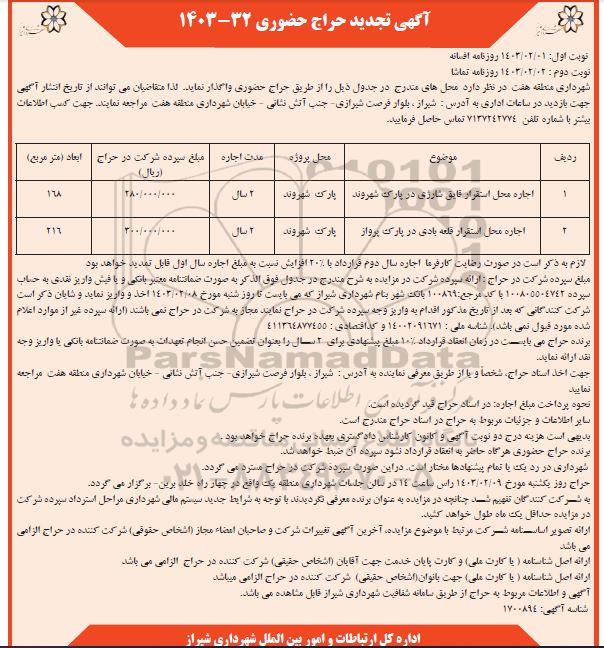 آگهی تجدید حراج حضوری ۳۲-۱۴۰۳
نوبت اول: ۱۴۰۳/۰۲/۰۱ روزنامه افسانه
نوبت دوم : ۱۴۰۳/۰۲/۰۲ روزنامه تماشا
شهرداری منطقه هفت در نظر دارد محل های مندرج در جدول ذیل را از طریق حراج حضوری واگذار نماید. لذا متقاضیان می توانند از تاریخ انتشار آگهی
جهت بازدید در ساعات اداری به آدرس : شیراز ، بلوار فرصت شیرازی- جنب آتش نشانی - خیابان شهرداری منطقه هفت مراجعه نمایند. جهت کسب اطلاعات
بیشتر با شماره تلفن ۷۱۳۷۲۴۲۷۷۴ تماس حاصل فرمایید.
ردیف موضوع محل پروژه مدت اجاره مبلغ سپرده شرکت در حراج (ریال) ابعاد (متر مربع)
۱ اجاره محل استقرار قایق شارژی در پارک شهروند پارک شهروند ۲ سال ۲۸۰/۰۰۰/۰۰۰ ۱۶۸
۲ اجاره محل استقرار قلعه بادی در پارک پرواز پارک شهروند ۲ سال ۳۰۰/۰۰۰/۰۰۰ ۲۱۶
لازم به ذکر است در صورت رضایت کارفرما اجاره سال دوم قرارداد با ۲۰٪ افزایش نسبت به مبلغ اجاره سال اول قابل تمدید خواهد بود
مبلغ سپرده شرکت در حراج : ارائه سپرده شرکت در مزایده به شرح مندرج در جدول فوق الذکر به صورت ضمانتنامه معتبر بانکی و یا فیش واریز نقدی به حساب
سپرده ۱۰۰۸۰۵۵۰۴۷۴۲ با کد مرجع: ۱۰۰۸۶۹ بانک شهر بنام شهرداری شیراز که می بایست تا روز شنبه مورخ ۱۴۰۳/۰۲/۰۸ اخذ و واریز نماید و شایان ذکر است
شرکت کنندگانی که بعد از تاریخ مذکور اقدام به واریز وجه سپرده شرکت در حراج نمایند مجاز به شرکت در حراج نمی باشند (ارائه سپرده غیر از موارد اعلام
شده مورد قبول نمی باشد). شناسه ملی : ۱۴۰۰۲۰۹۱۶۷۱ و کداقتصادی : ۴۱۱۳۶۴۸۷۷۴۵۵
برنده حراج می بایست در زمان انعقاد قرارداد ۱۰٪ مبلغ پیشنهادی برای ۲ سال را بعنوان تضمین حسن انجام تعهدات به صورت ضمانتنامه بانکی یا واریز وجه
نقد ارائه نماید.
جهت اخذ اسناد حراج، شخصاً و یا از طریق معرفی نماینده به آدرس : شیراز ، بلوار فرصت شیرازی- جنب آتش نشانی - خیابان شهرداری منطقه هفت مراجعه
نمایید
نحوه پرداخت مبلغ اجاره: در اسناد حراج قید گردیده است.
سایر اطلاعات و جزئیات مربوط به حراج در اسناد حراج مندرج است.
بدیهی است هزینه درج دو نوبت آگهی و کانون کارشناس دادگستری بعهده برنده حراج خواهد بود .
برنده حضوری هرگاه حاضر به انعقاد قرارداد نشود سپرده آن ضبط خواهد شد.
شهرداری در رد یک یا تمام پیشنهادها مختار است. دراین صورت سپرده شرکت در حراج مسترد می گردد.
حراج روز یکشنبه مورخ ۱۴۰۳/۰۲/۰۹ راس ساعت ۱۴ در سالن جلسات شهرداری منطقه یک واقع در چهار راه خلد برین- برگزار می گردد.
به شرکت کنندگان تفهیم شد چنانچه در مزایده به عنوان برنده معرفی نگردیدند با توجه به شرایط جدید سیستم مالی شهرداری مراحل استرداد سپرده شرکت
در مزایده حداقل یک ماه طول خواهد کشید.
ارائه تصویر اساسنامه شرکت مرتبط با موضوع مزایده، آخرین آگهی تغییرات شرکت و صاحبان امضاء مجاز (اشخاص حقوقی) شرکت کننده در حراج الزامی
می باشد
ارائه اصل شناسنامه ( یا کارت ملی) و کارت پایان خدمت جهت آقایان (اشخاص حقیقی) شرکت کننده در حراج الزامی می باشد
ارائه اصل شناسنامه ( یا کارت ملی) جهت بانوان(اشخاص حقیقی) شرکت کننده در حراج الزامی میباشد
آگهی و اطلاعات مربوط به حراج از طریق سامانه شفافیت شهرداری شیراز قابل مشاهده می باشد.
شناسه آگهی: ۱۷۰۰۸۹۴
اداره کل ارتباطات و امور بین الملل شهرداری شیراز
ParsNamadData